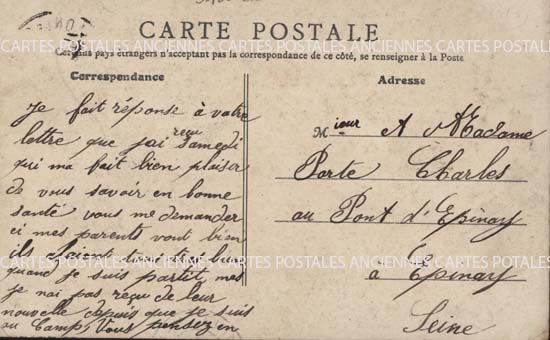 CARTE POSTALE
CARTES POSTALES ANCIENNES CARTES POSTALES ANCIENNES CARTES POSTALES
Certains pays étrangers n'acceptent pas la correspondance de ce côté, se renseigner à la Poste
Correspondance
Je fait réponse à votre
lettre que jai reçu samedi
qui ma fait bien plaisir
de vous savoir en bonne
santé vous me demander
ci mes parents vont bien
ils bien
quand je suis partit mes
je nai pas reçu de leur
nouvelle depuis que je suis
au Camp, Vous pensez en
Adresse
Mieur A Madame
Porte Charles
au Pont d'Epinay
à Epinay
Seine
CARTES POSTALES ANCIENNES CARTES POSTALES ANCIENNES CARTES POSTALES